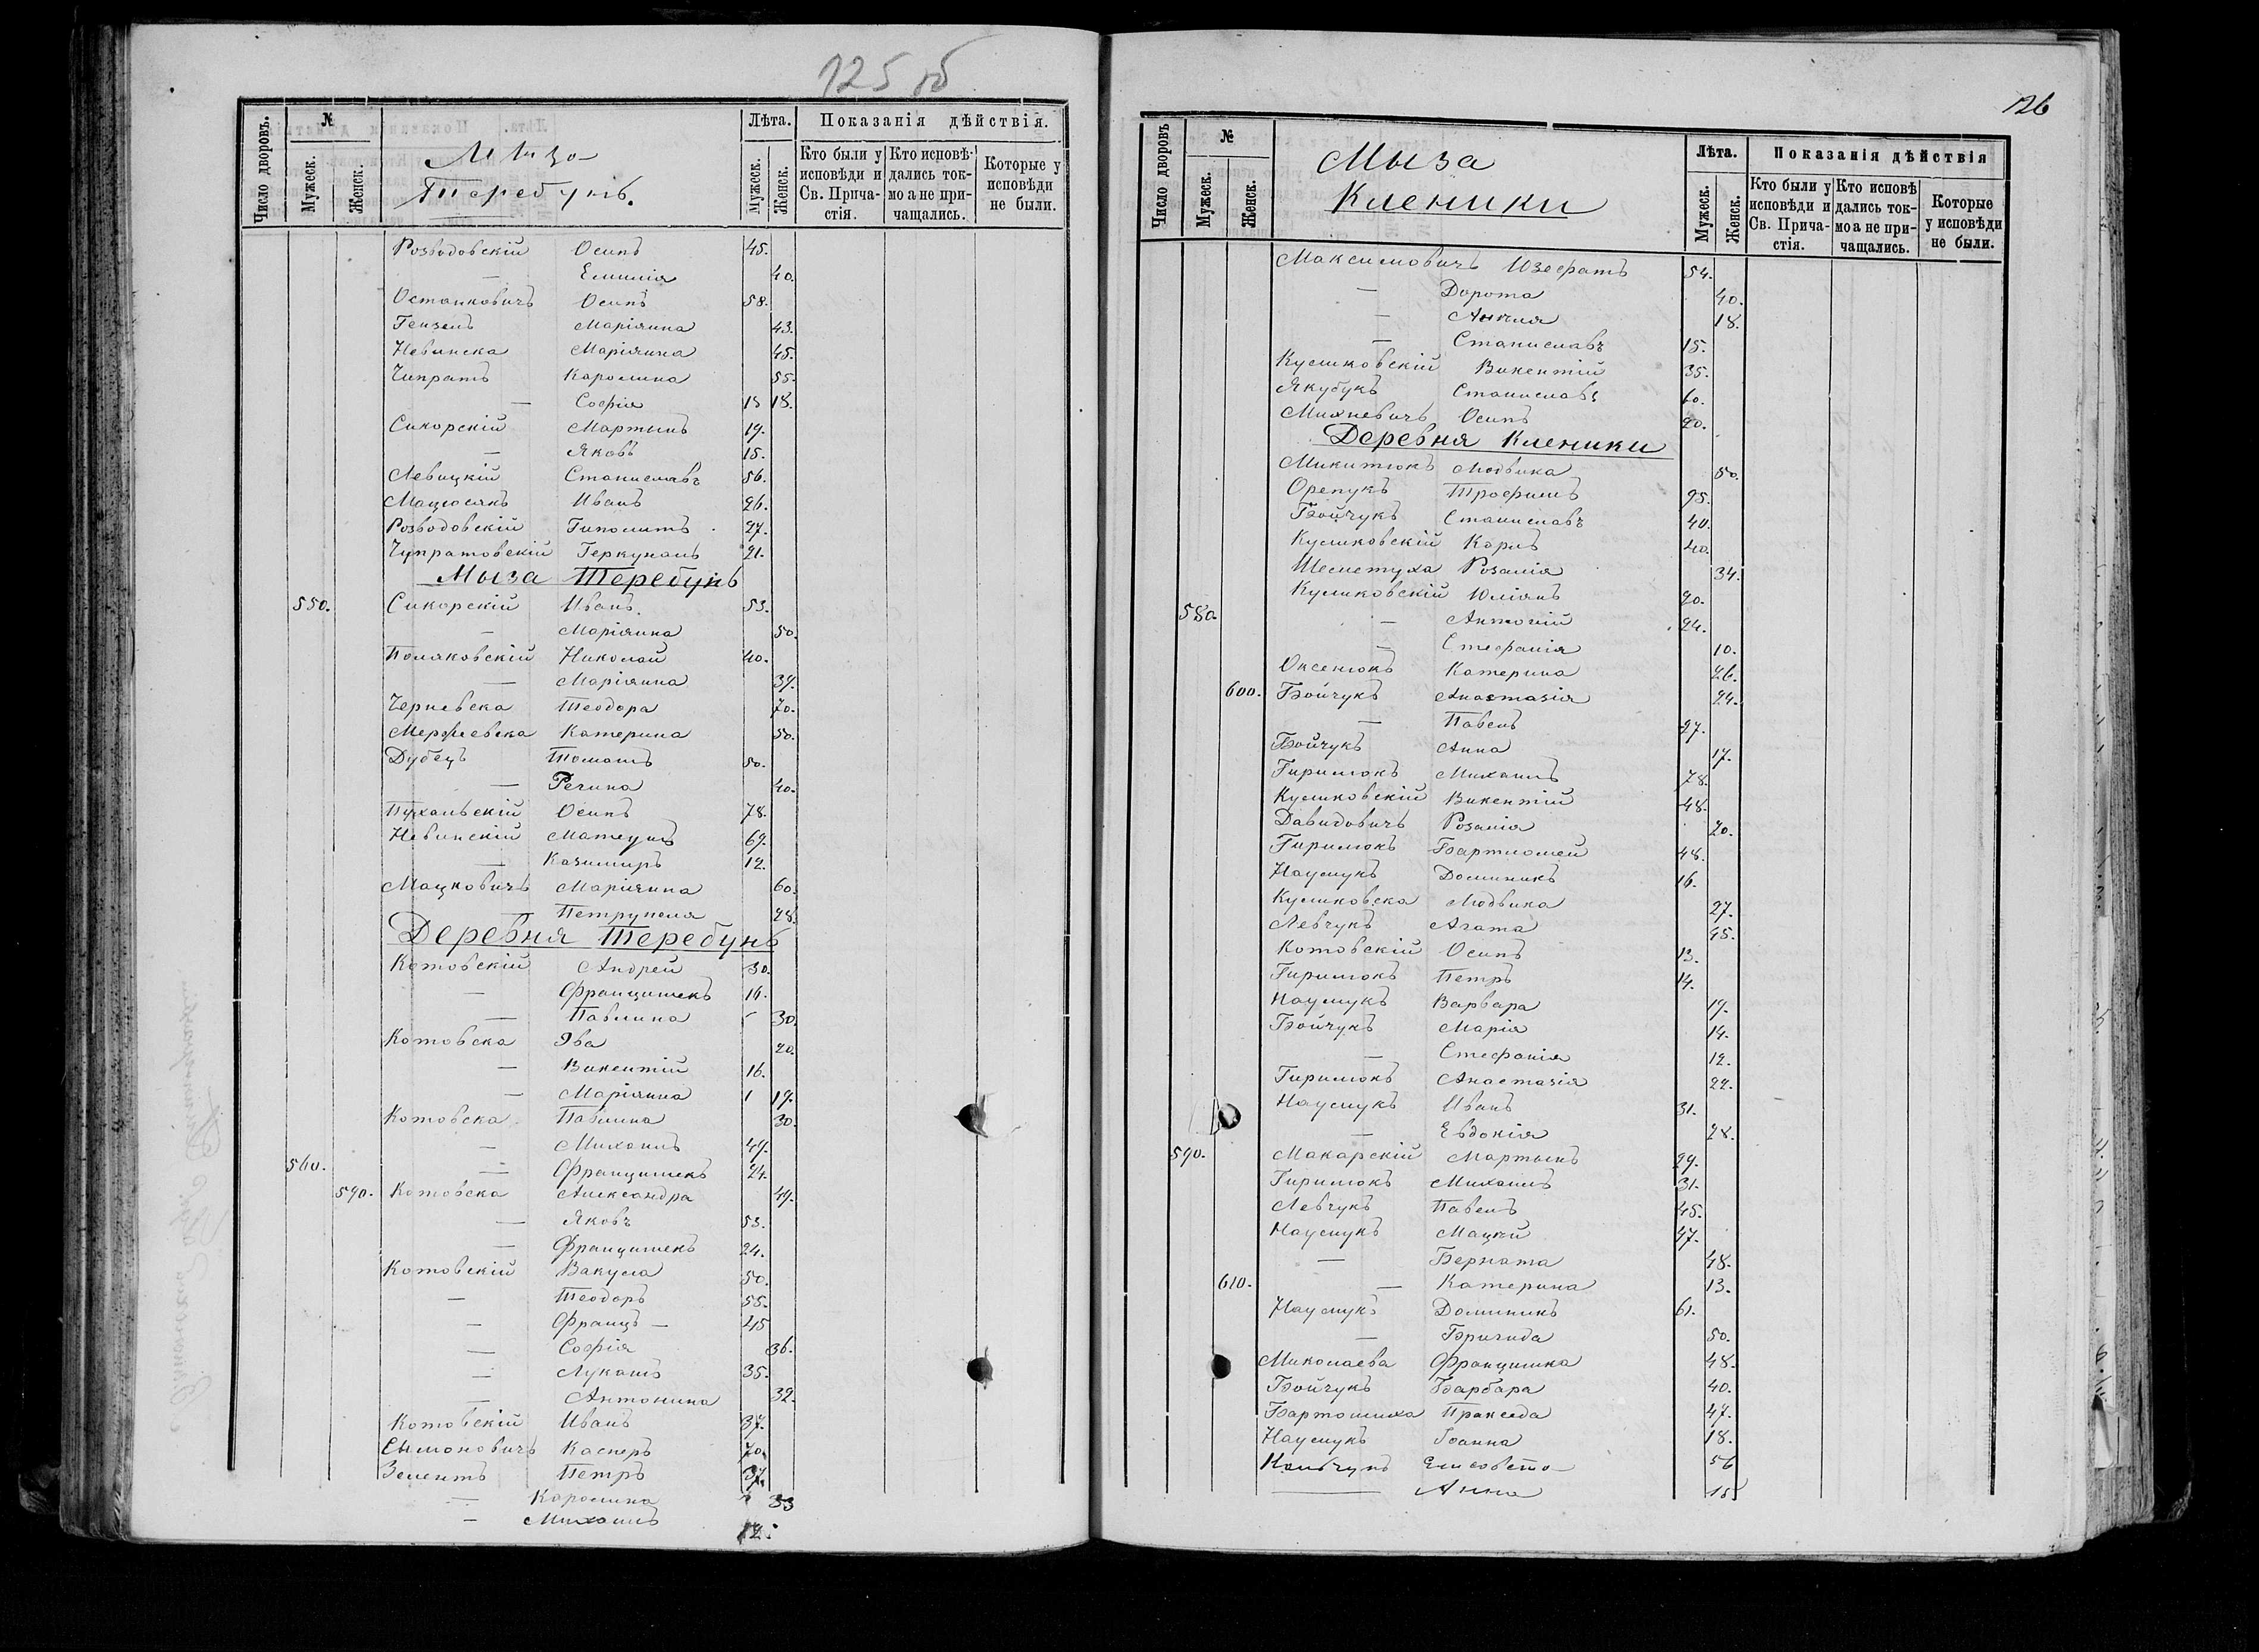 125 об
Число дворовъ.
№
Мужеск.
Женск.
Мыза
Теребунь.
Лѣта.
Мужеск.
Женск.
Показанія дѣйствія.
Кто были у исповѣди и Св. Прича-стія.
Кто исповѣ-дались ток-мо а не при-чащались.
Которые у исповѣди не были.
Розводовскій Осипъ 45.
— Емилія 40.
Останковичъ Осипъ 58.
Гензель Маріянна 43.
Невинска Маріянна 45.
Чипратъ Каролина 55.
— Софія 18.
Сикорскій Мартынъ 19.
— Яковъ 15.
Левицкій Станиславъ 56.
Мацюсякъ Иванъ 26.
Розводовскій Гиполитъ 27.
Чупратовскій Геркуланъ 21.
Мыза Теребунь
550. Сикорскій Иванъ 53.
— Маріянна 50.
Поляковскій Николай 40.
— Маріянна 39.
Черневска Теодора 70.
Катерина 50.
Дубецъ Томашъ 50.
— Регина 40.
Пухальскій Осипъ 78.
Невинскій Матеушъ 69.
— Казимиръ 12.
Мацковичъ Маріянна 60.
— Петрунеля 28.
Деревня Теребунь
Котовскій Андрей 30.
— Францишекъ 16.
— Павлина 30.
Котовска Эва 20.
— Викентій 16.
— Маріянна 19.
Котовска Павлина 30.
— Михаилъ 49.
560. — Францишекъ 24.
590. Котовска Александра 49.
— Яковъ 53.
— Францишекъ 24.
Котовскій Вакула 50.
— Теодоръ 55.
— Францъ — 45
— Софія 36.
— Лукашъ 35.
— Антонина 32.
Котовскій Иванъ 37.
Сымоновичъ Касперъ 70.
Зелентъ Петръ 37.
— Каролина 33
— Михаилъ 12.
126
Число дворовъ
№
Мужеск.
Женск.
Мыза
Кленики
Лѣта.
Мужеск.
Женск.
Показанія дѣйствія
Кто были у исповѣди и Св. Прича-стія.
Кто исповѣ дались ток-мо а не при-чащались.
Которые у исповѣди не были.
Максимовичъ Юзефатъ 54.
— Дорота 40.
— Анеля 18.
— Станиславъ 15.
Куликовскій Викентій 35.
Якубукъ Станиславъ 60.
Михневичъ Осипъ 20.
Деревня Кленики
Микитюкъ Людвика 50.
Орепукъ Трофимъ 95.
Бойчукъ Станиславъ 40.
Куликовскій Карлъ 40.
Шелетуха Розалія 34.
Куликовскій Юліянъ 20.
580. — Антоній 24.
— Стефанія 10.
Оксенюкъ Катерина 26.
600. Бойчукъ Анастазія 24.
— Павелъ 27.
Бойчукъ Анна 17.
Гирилюкъ Михаилъ 78.
Куликовскій Викентій 48.
Давидовичъ Розалія 20.
Гирилюкъ Бартломей 48.
Наумукъ Доминикъ 16.
Куликовска Людвика 27.
Левчукъ Агата 45.
Котовскій Осипъ 13.
Гирилюкъ Петръ 14.
Наумукъ Варвара 19.
Бойчукъ Марія 14.
— Стефанія 12.
Гирилюкъ Анастазія 22.
Наумукъ Иванъ 31.
— Евдокія 28.
590. Макарскій Мартынъ 29.
Гирилюкъ Михаилъ 31.
Левчукъ Павелъ 45.
Наумукъ Мацѣй 47.
— Берната 48.
610. — Катерина 13.
Наумукъ Доминикъ 61.
— Бригида 50.
Миколаева Францишка 48.
Бойчукъ Барбара 40.
БартошихаРакседа 47.
Наумукъ Іоанна 18.
Елисавета 56
— Анна 18